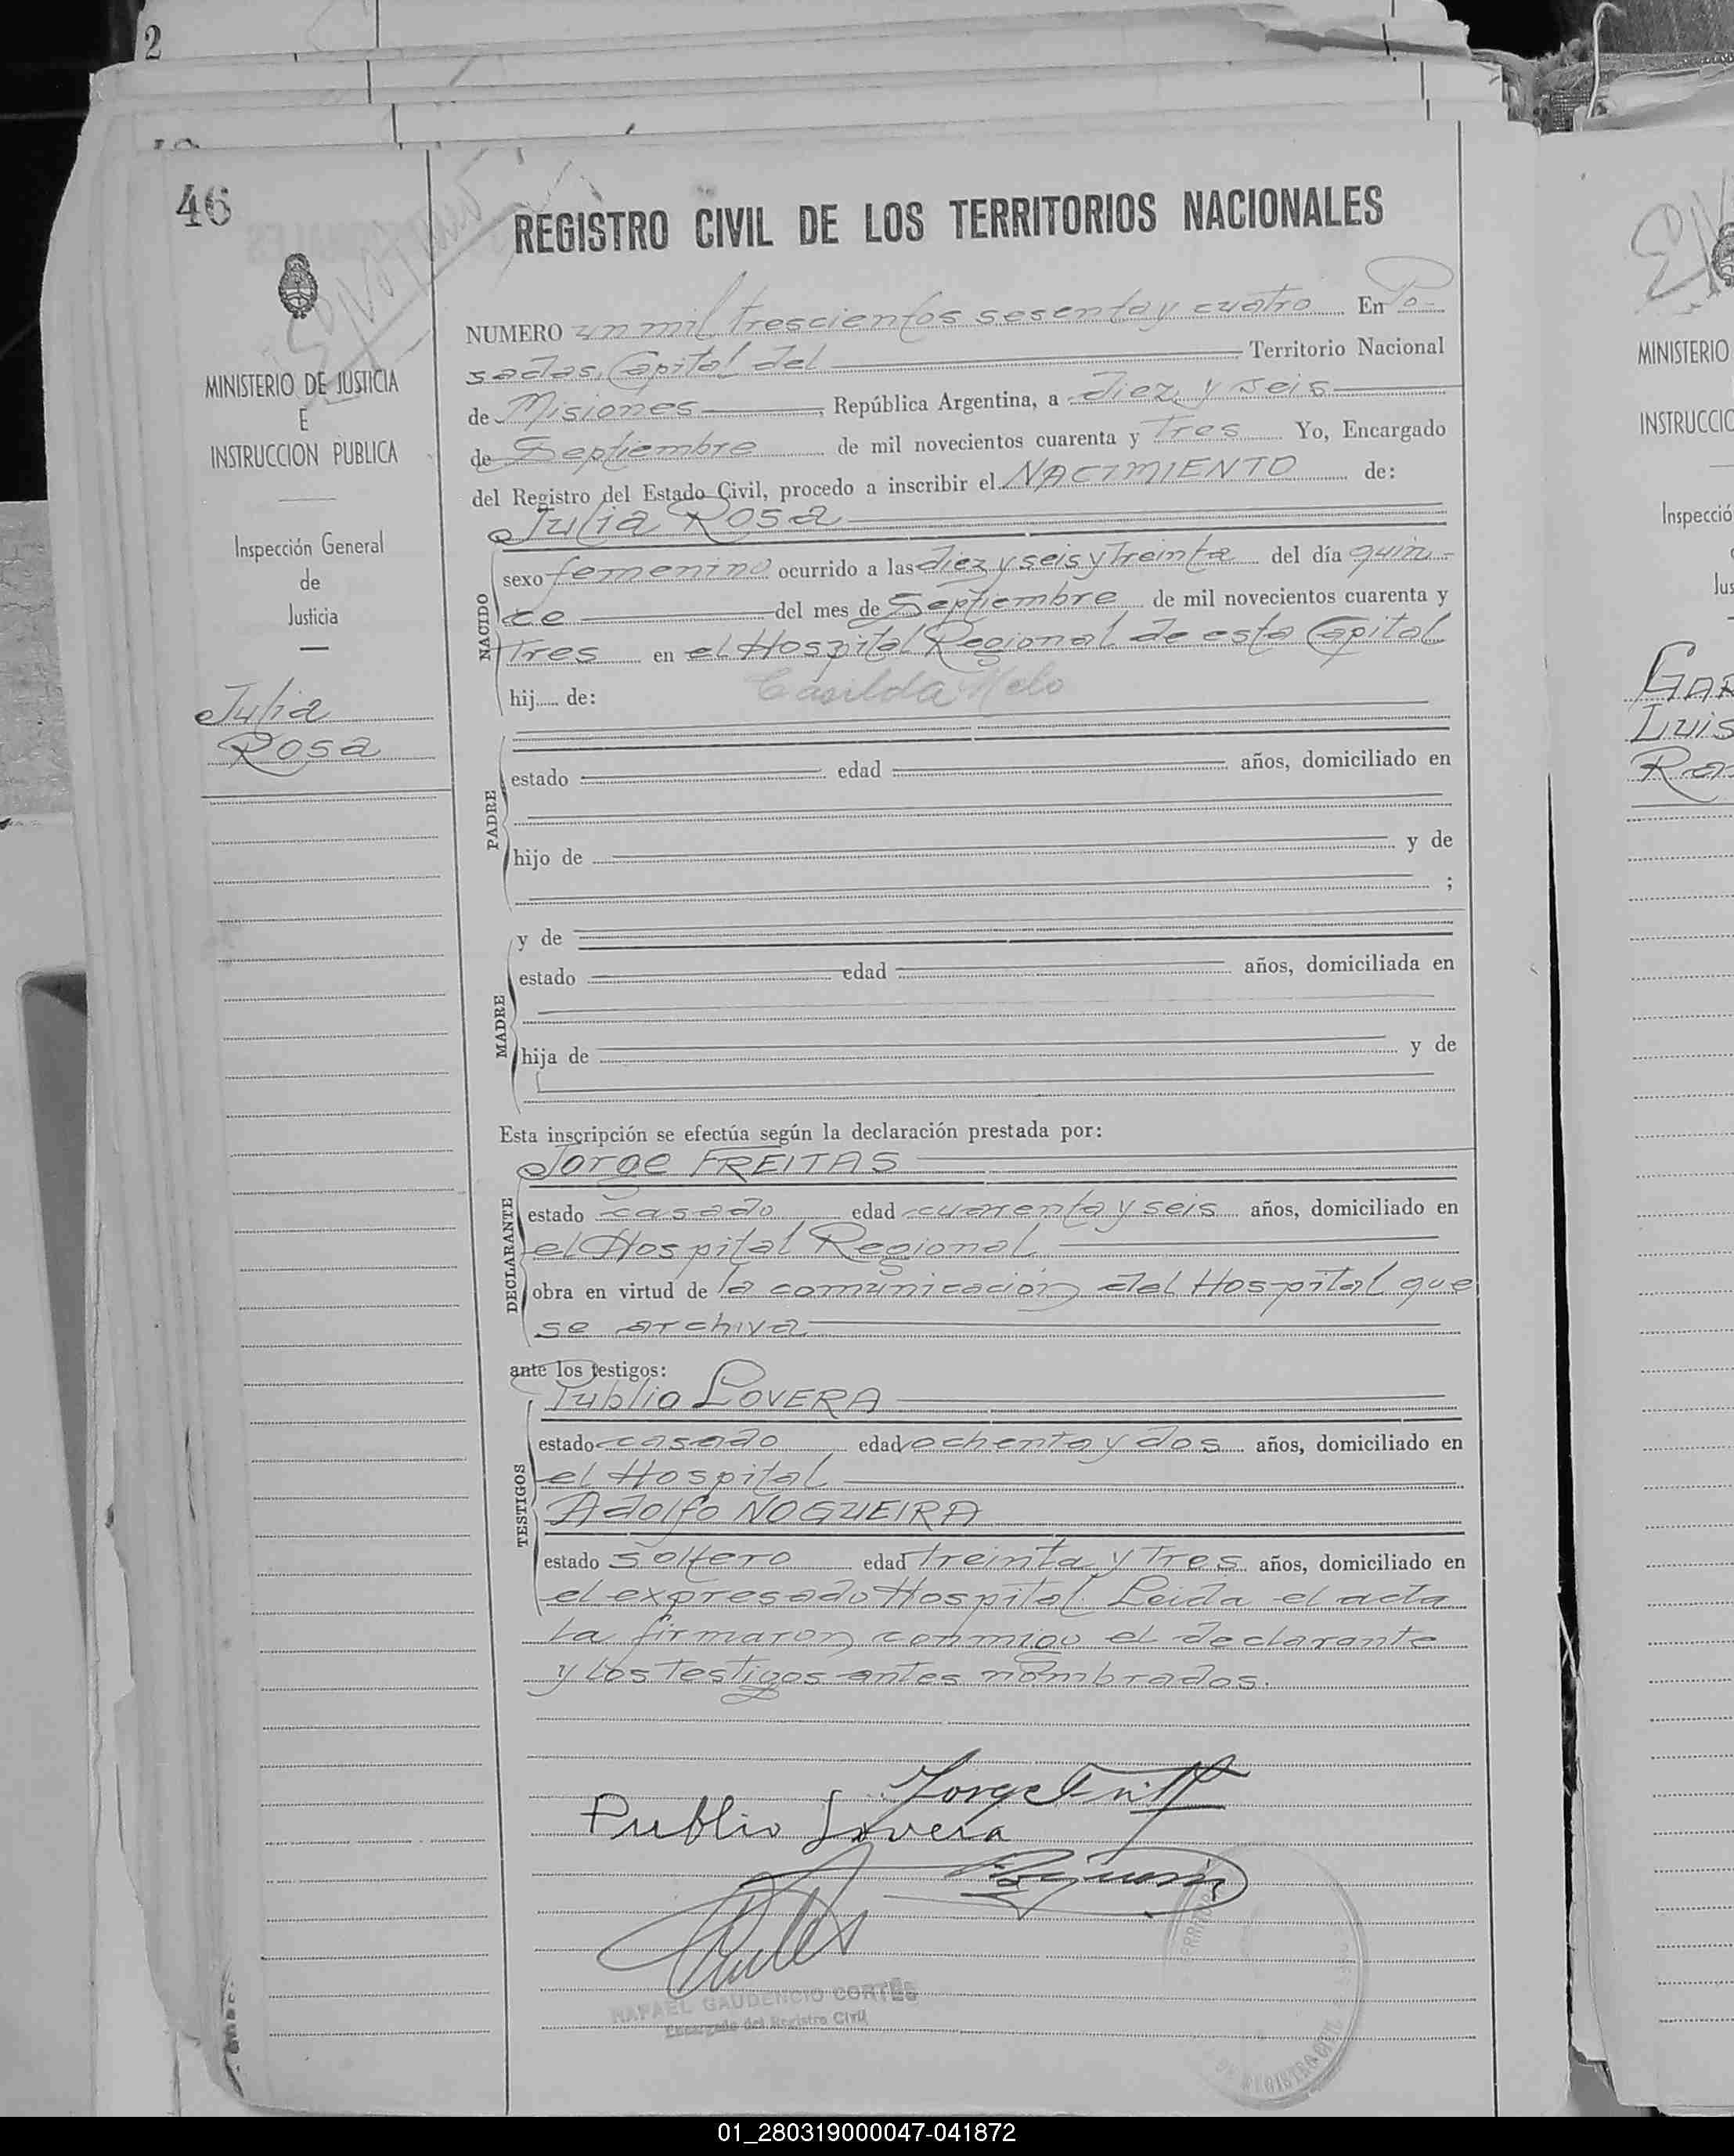 2
46
REGISTRO CIVIL DE LOS TERRITORIOS NACIONALES
MINISTERIO DE JUSTICIA
E
INSTRUCCION PUBLICA
Inspección General
de
Justicia
Julia
Rosa
NUMERO un mil trescientos sesenta y cuatro En Po-
sadas, Capital del Territorio Nacional
de Misiones, República Argentina, a diez y seis
de Septiembre de mil novecientos cuarenta y Tres Yo, Encargado
del Registro del Estado Civil, procedo a inscribir el NACIMIENTO de:
Julia Rosa
NACIDO
sexo femenino ocurrido a las diez y seis y treinta del día quin-
ce del mes de Septiembre de mil novecientos cuarenta y
Tres en el Hospital Regional de esta Capital
hij de: Casilda Melo
PADRE
estado edad años, domiciliado en
hijo de y de
;
MADRE
y de
estado edad años, domiciliada en
hija de y de
Esta inscripción se efectúa según la declaración prestada por:
DECLARANTE
Jorge FREITAS
estado casado edad cuarenta y seis años, domiciliado en
el Hospital Regional
obra en virtud de la comunicación del Hospital que
se archiva
ante los testigos:
TESTIGOS
Publio LOVERA
estado casado edad ochenta y dos años, domiciliado en
el Hospital
Adolfo NOGUEIRA
estado soltero edad treinta y Tres años, domiciliado en
el expresado Hospital. Leida el acta
la firmaron conmigo el declarante
y los Testigos antes nombrados.
Jorge
Publio Lovera
RAFAEL GAUDENCIO CORTÉS
Encargado del Registro Civil
MINISTERIO
INSTRUCCIO
Inspecció
Jus
GAR
LUIS
Ra
01_280319000047-041872